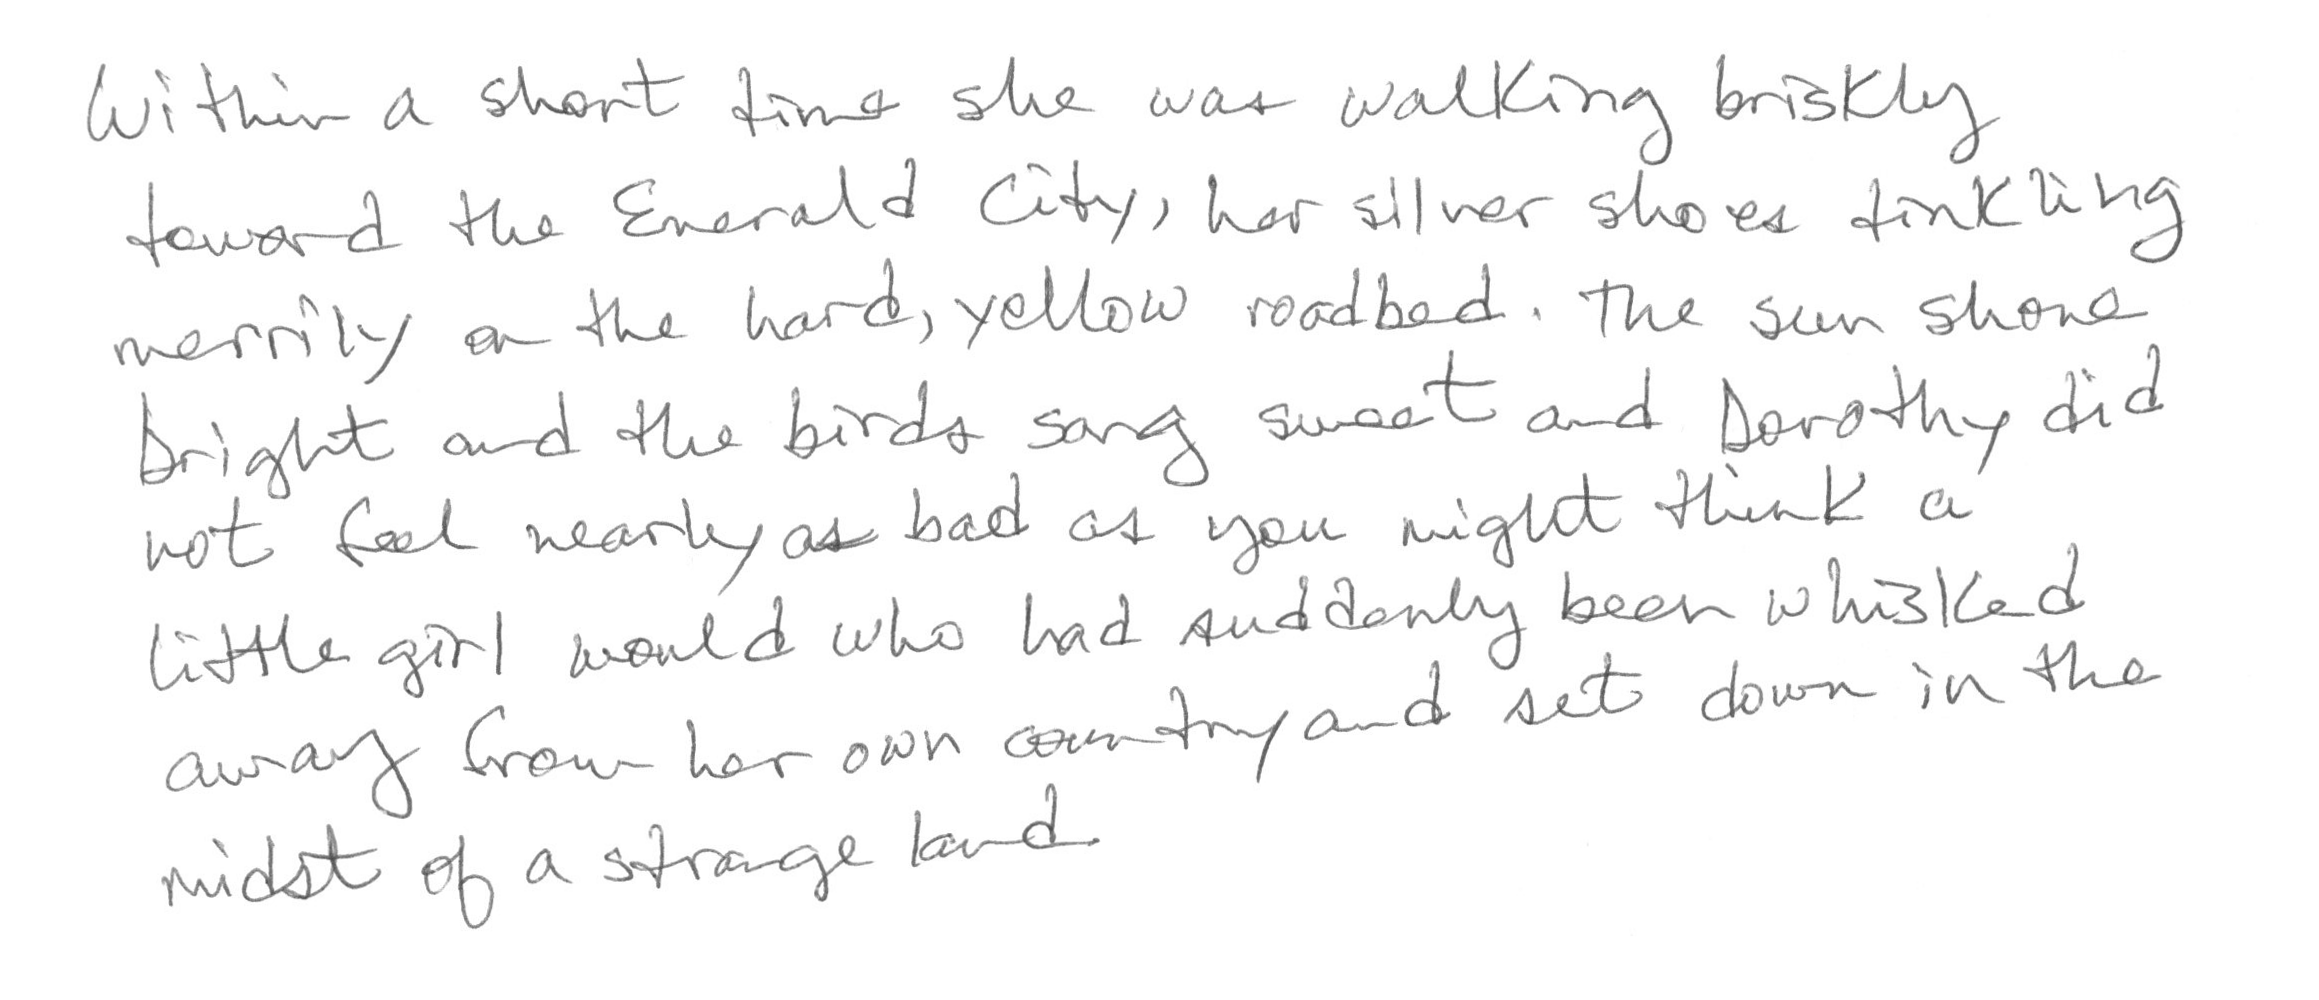 Within a short time she was walking briskly
toward the Emerald City, her silver shoes tinkling
merrily on the hard, yellow roadbed. The sun shone
bright and the birds sang sweet and Dorothy did
not feel nearly as bad as you might think a
little girl would who had suddenly been whisked
away from her own country and set down in the
midst of a strange land